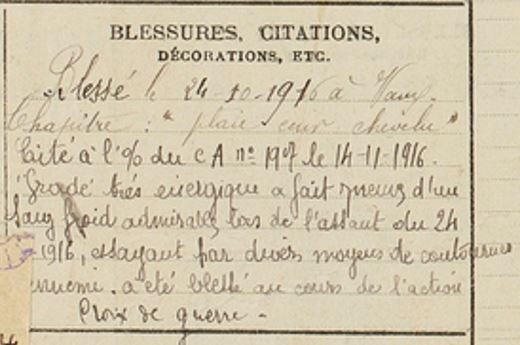 BLESSURES, CITATIONS,
DÉCORATIONS, ETC.
Blessé le 24-10-1916 à Vaux-
Chapitre : "plaie cuir chevelu"
Cité à l'% du CA nº 1907 le 14-11-1916.
"Gradé très énergique a fait preuve d'un
sang froid admirable lors de l'assaut du 24
1916, essayant par divers moyens de contourner
ennemi. a été blessé au cours de l'action
Croix de guerre -